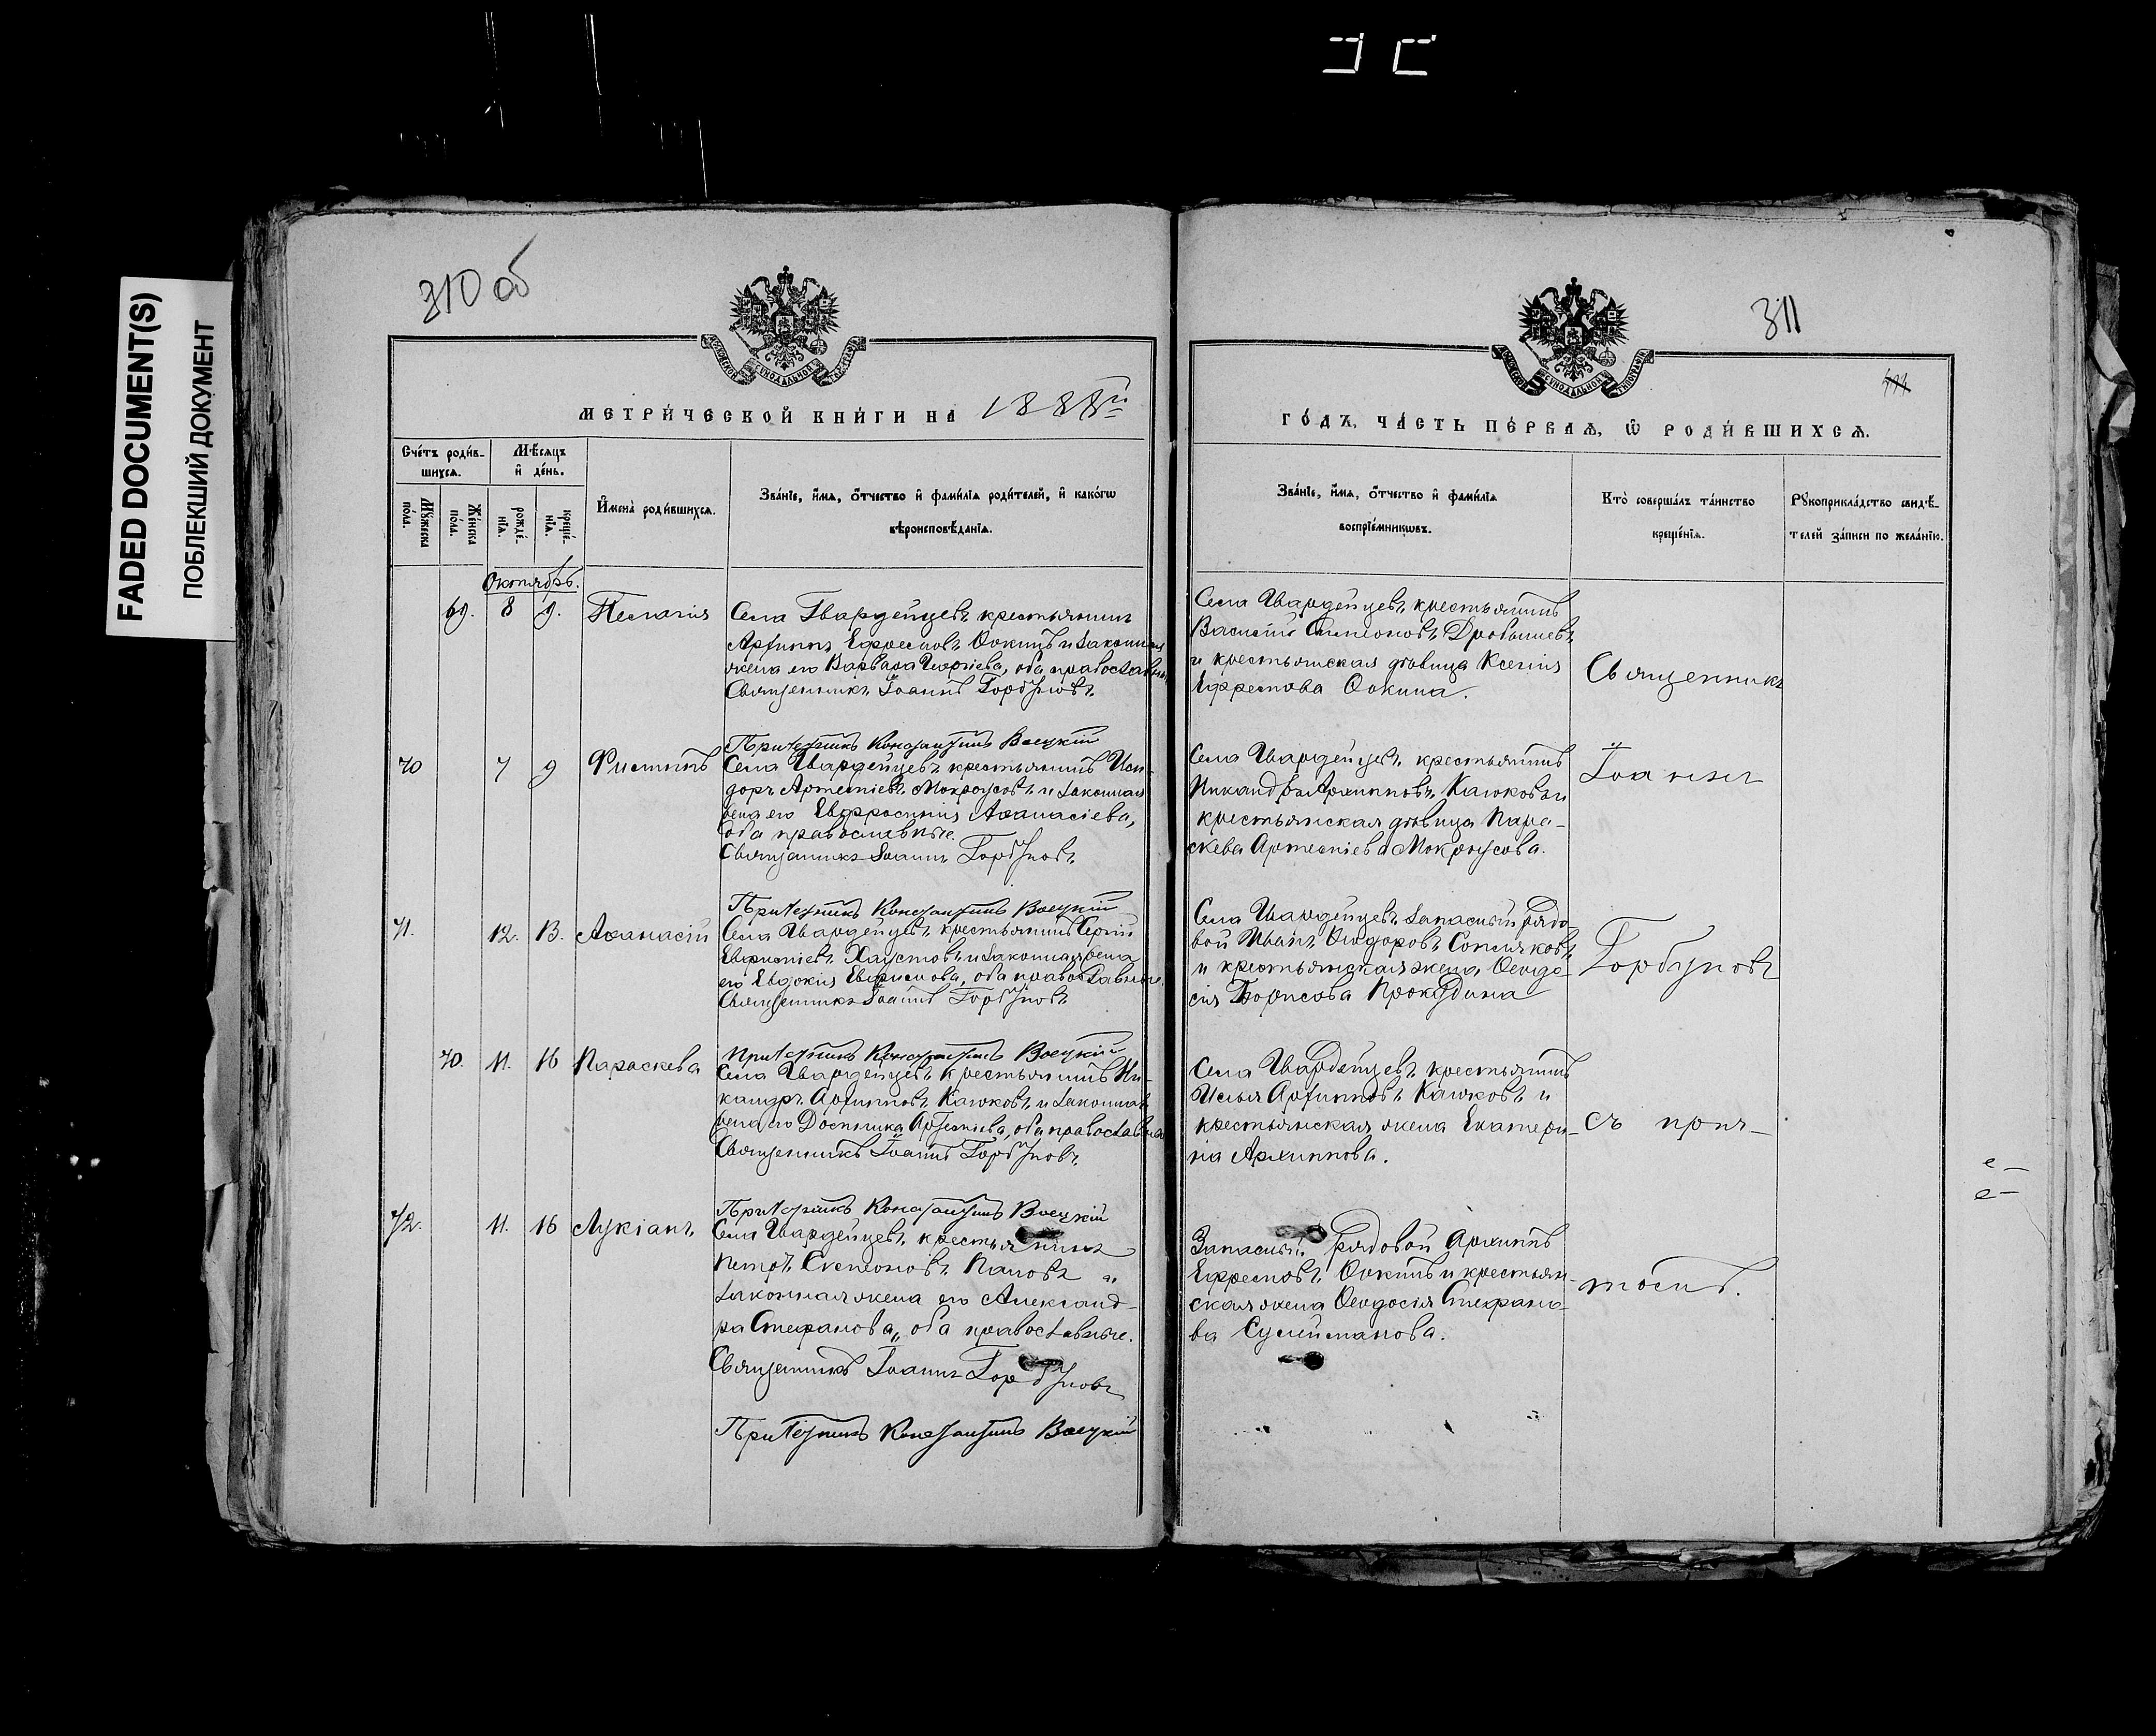 FADED DOCUMENT(S)
ПОБЛЕКШИЙ ДОКУМЕНТ
310 об
МЕТРИ́ЧЕСКОЙ КНИ́ГИ НА 1888й
Сче́тъ роди́в-
шихся.
Мѣ́сяцъ
и҆ де́нь.
Мꙋ́жеска
по́ла.
Же́нска
по́ла.
рожде́-
нїѧ.
креще́-
нїѧ.
И҆мена̀ роди́вшихсѧ.
Зва́нїе, и҆́мѧ, о҆́тчество и҆ фами́лїѧ роди́телей, и҆ како́гѡ
вѣроисповѣ́данїѧ.
Октябрь.
69. 8 9. Пелагія
Села Гвардейцевъ крестьянинъ
Архипъ Ефремовъ Ѳокинъ и законная
жена его Варвара Георгіева, оба православные
Священникъ Іоаннъ Горбуновъ
Причетникъ Константинъ Воецкій
70 7 9 Филиппъ
Села Гвардейцевъ крестьянинъ Иси-
доръ Артеміевъ Мокроусовъ и законная
жена его Евфросинія Аѳанасіева,
оба православные.
Священникъ Іоаннъ Горбуновъ
Причетникъ Константинъ Воецкій
71. 12. 13. Аѳанасій
Села Гвардейцевъ крестьянинъ Сергій
Евфиміевъ Хаустовъ и законная жена
его Евдокія Евфимова, оба православные.
Священникъ Іоаннъ Горбуновъ
Причетникъ Константинъ Воецкій
70. 11. 16 Параскева
Села Гвардейцевъ крестьянинъ Ни-
кандръ Архиповъ Каюковъ и законная
жена его Домника Артеміева, оба православные
Священникъ Іоаннъ Горбуновъ
Причетникъ Константинъ Воецкій
72. 11. 16 Лукіанъ
Села Гвардейцевъ крестьянинъ
Петръ Симеоновъ Пановъ и
законная жена его Александ-
ра Стефанова, оба православные.
Священникъ Іоаннъ Горбуновъ
Причетникъ Константинъ Воецкій
311
ГО́ДЪ, ЧА́СТЬ ПЕ́РВАѦ, Ѡ҆ РОДИ́ВШИХСѦ.
Зва́нїе, и҆́мѧ, о҆́тчество и҆ фами́лїѧ
воспрїе́мникѡвъ.
Кто̀ соверша́лъ та́инство
креще́нїѧ.
Рꙋкоприкла́дство свидѣ́-
телей за́писи по жела́нїю.
Села Гвардейцевъ крестьянинъ
Василій Симеоновъ Дробышевъ
и крестьянская дѣвица Ксенія
Ефремова Ѳокина.
Села Гвардейцевъ крестьянинъ
Никандръ Архипповъ Каюковъ и
крестьянская дѣвица Пара-
скева Артеміева Мокроусова.
Села Гвардейцевъ запасный рядо
вой Іванъ Ѳеодоровъ
и крестьянская жена Ѳеодо-
сія Борисова Прокудина
Села Гвардейцевъ крестьянинъ
Илья Архипповъ Каюковъ и
крестьянская жена Екатери-
на Архиппова.
Запасный рядовой Архиппъ
Ефремовъ Ѳокинъ и крестьян-
ская жена Ѳеодосія Стефано-
ва Сулейманова.
Священникъ
Іоаннъ
Горбуновъ
съ прич-
томъ.